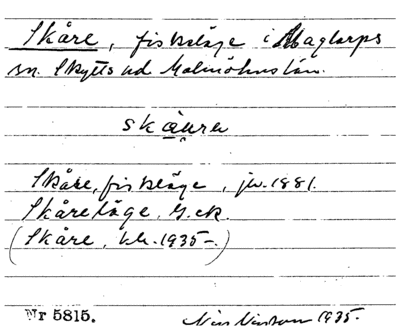 Skåre, fiskeläge i Maglarps
sn. Skytts hd Malmöhus län.
Skåre, fiskeläge, jw. 1881.
Skåreläge, G.ek.
(Skåre, kh. 1935-.)
Nr 5815. 1935.